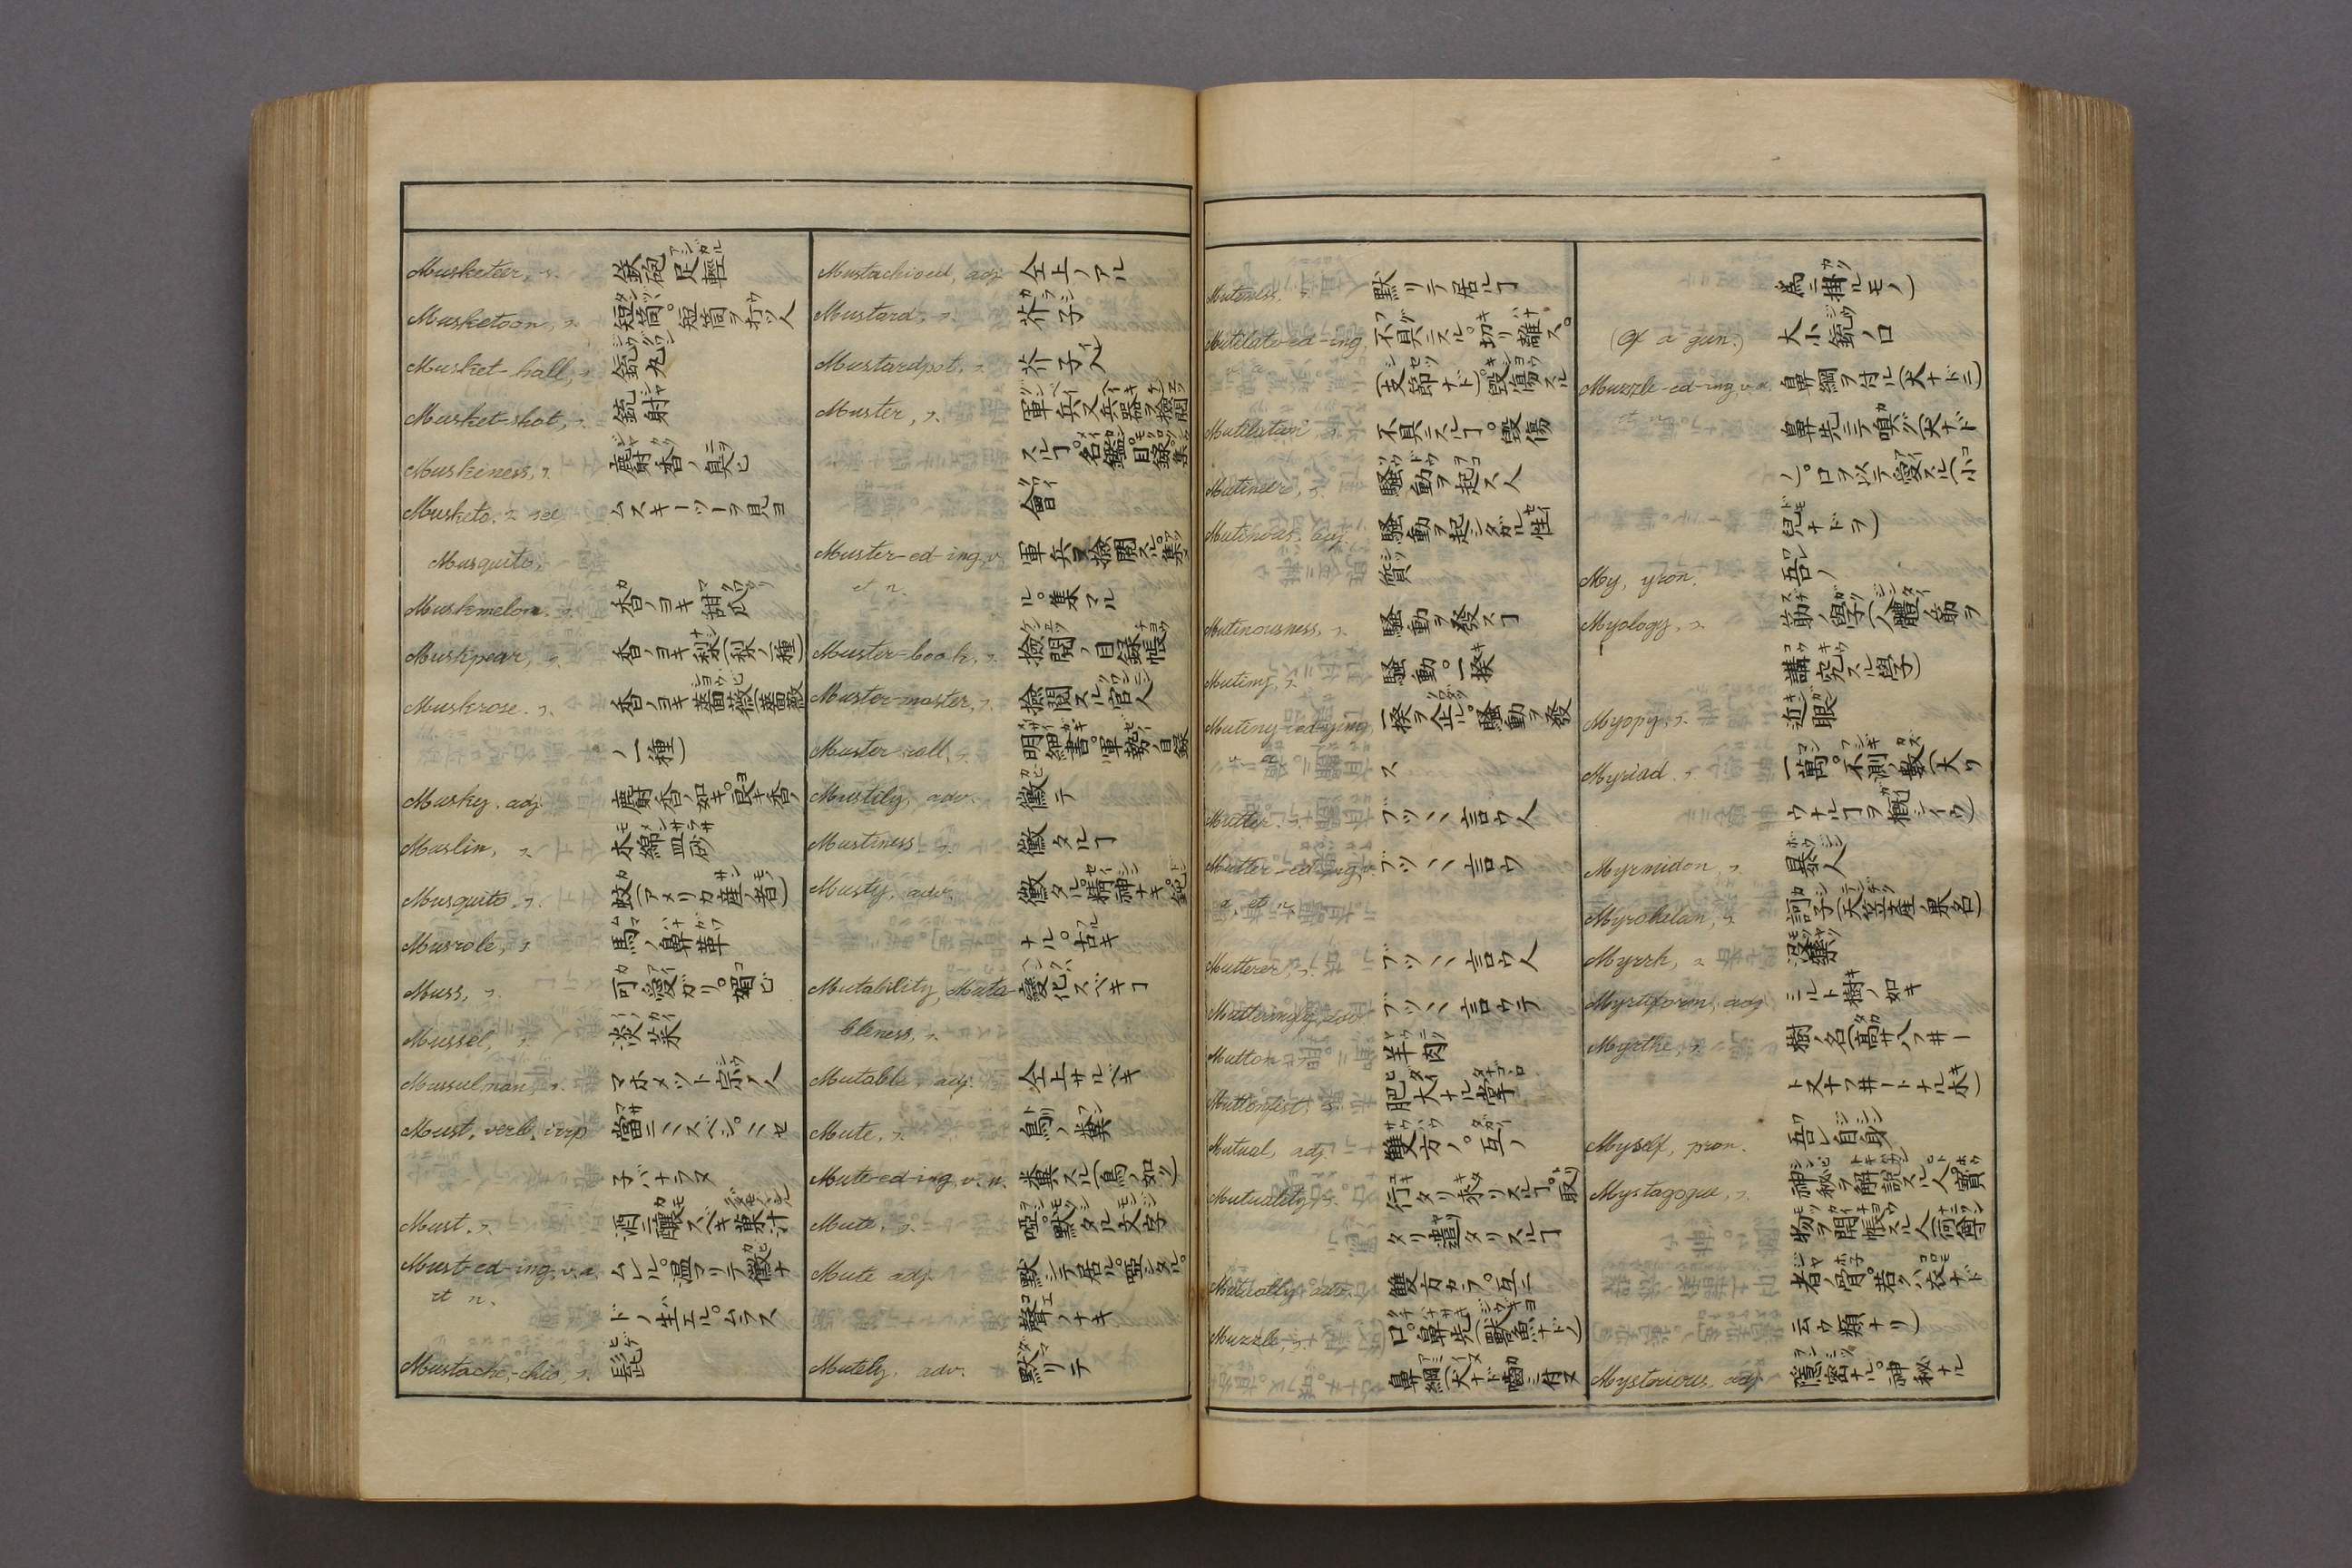 Musketeer, n. 銃砲足軽
Musketoon, n. 短筒。短筒ヲ打ツ人
Musket-ball, n. 銃丸
Musket-shot, n. 銃射
Muskiness, n. 麝香ノ臭ヒ
Musketo, n. see ムスキートーヲ見ヨ
Musquito.
Muskmelon, n. 香ノヨキ甜瓜
Muskpear, n. 香ノヨキ梨(梨ノ一種)
Muskrose, n. 香ノヨキ薔薇(薔薇
ノ一種)
Musky, adj. 麝香ノ如キ。良キ香ノ
Muslin, n. 木綿皿砂
Musquito, n. 蚊(アメリカ産ノ者)
Musrole, n. 馬ノ鼻革
Muss, n. 可愛ガリ。媚ヒ
Mussel, n. 淡菜
Mussulman, n. マホメット宗ノ人
Must, verb. irrp. 當ニ〻スベシ。ニセ
子バナラヌ
Must, n. 酒ニ醸スベキ菓汁
Must-ed-ing, v. a. ムレル。温マリテ黴ナ
et n. ドノ生エル。ムラス
Mustache, -chio, n. 髭
Mustachioed, adj. 仝上ノアル
Mustard, n. 芥子
Mustardpot, n. 芥子入
Muster, n. 軍兵又兵器ヲ撿閲
スルヿ。名鑑。目録。集
會
Muster-ed-ing, v. 軍兵ヲ撿閲スル。集ツ
et n. ル。集マル
Muster-book, n. 撿閲ノ目録帳
Muster-master, n. 撿閲スル官人
Muster-roll, n. 明細書。軍勢ノ目録
Mustily, adv. 黴テ
Mustiness, n. 黴タルヿ
Musty, adv. 黴タル。精神ナキ。鈍
ナル。古キ
Mutability, Muta- 變化スベキヿ
bleness, n.
Mutable, adj. 仝上サルベキ
Mute, n. 鳥ノ糞
Mute-ed-ing, v. n. 糞スル(鳥ノ如ク)
Mute, n. 啞。默タル文字
Mute adj. 默シテ居ル。啞シタル。
聲ノナキ
Mutely, adv. 默リテ
Muteness, n. 默リテ居ルヿ
Mutilate-ed-ing, 不具ニスル。切リ離ス。
v. a. (支節ナド)毀傷スル
Mutilation, n. 不具ニスルヿ。毀傷
Mutineer, n. 騒動ヲ起ス人
Mutinous, adj. 騒動ヲ起シタガル性
質
Mutinousness, n. 騒動ヲ發スヿ
Mutiny, n. 騒動。一揆
Mutiny-ed-ying, 一揆ヲ企ル。騒動ヲ發
v. n. ス
Mutter, n. ブツ〻〻言ウ人
Mutter-ed-ing, v. ブツ〻〻言ウ
a. et n.
Mutterer, n. ブツ〻〻言ウ人
Mutteringly, adv. ブツ〻〻言ウテ
Mutton, n. 羊肉
Muttonfist, n. 肥大ナル掌
Mutual, adj. 雙方ノ。互ノ
Mutuality, n. 行タリ来リスルヿ。取
タリ遣タリスルヿ
Mutually, adv. 雙方カラ。互ニ
Muzzle, n. 口。鼻先(獣魚ナドノ)
鼻綱(犬ナド嚙ニ付ヌ
為ニ掛ルモノ)
(Of a gun.) 大小銃ノ口
Muzzle-ed-ing, v. a. 鼻綱ヲ付ル(犬ナドニ)
et n. 鼻先ニテ嗅グ(犬ナド
ノ)。口ヲ以テ愛スル(小
兒ナドヲ)
My, pron. 吾ノ
Myology, n. 筋ノ學(人體ノ筋ヲ
講究スル學)
Myopy, n. 近眼
Myriad, n. 一萬。不測ノ數(大ソ
ウナルヿヲ概シイウ)
Myrmidon, n. 暴人
Myrobalan, n. 訶子(天竺産ノ果名)
Myrrh, n. 没藥
Myrtiform, adj. ミルト樹ノ如キ
Myrthe, n. 樹ノ名(高サ八フ井ー
ト又十フ井ートナル木)
Myself, pron. 吾レ自身
Mystagogue, n. 神秘ヲ解説スル人。寶
物ヲ開帳スル人(何尊
者ノ骨。若クハ衣ナド
云ウ類ナリ)
Mysterious, adj. 隱密ナル。神秘ナル